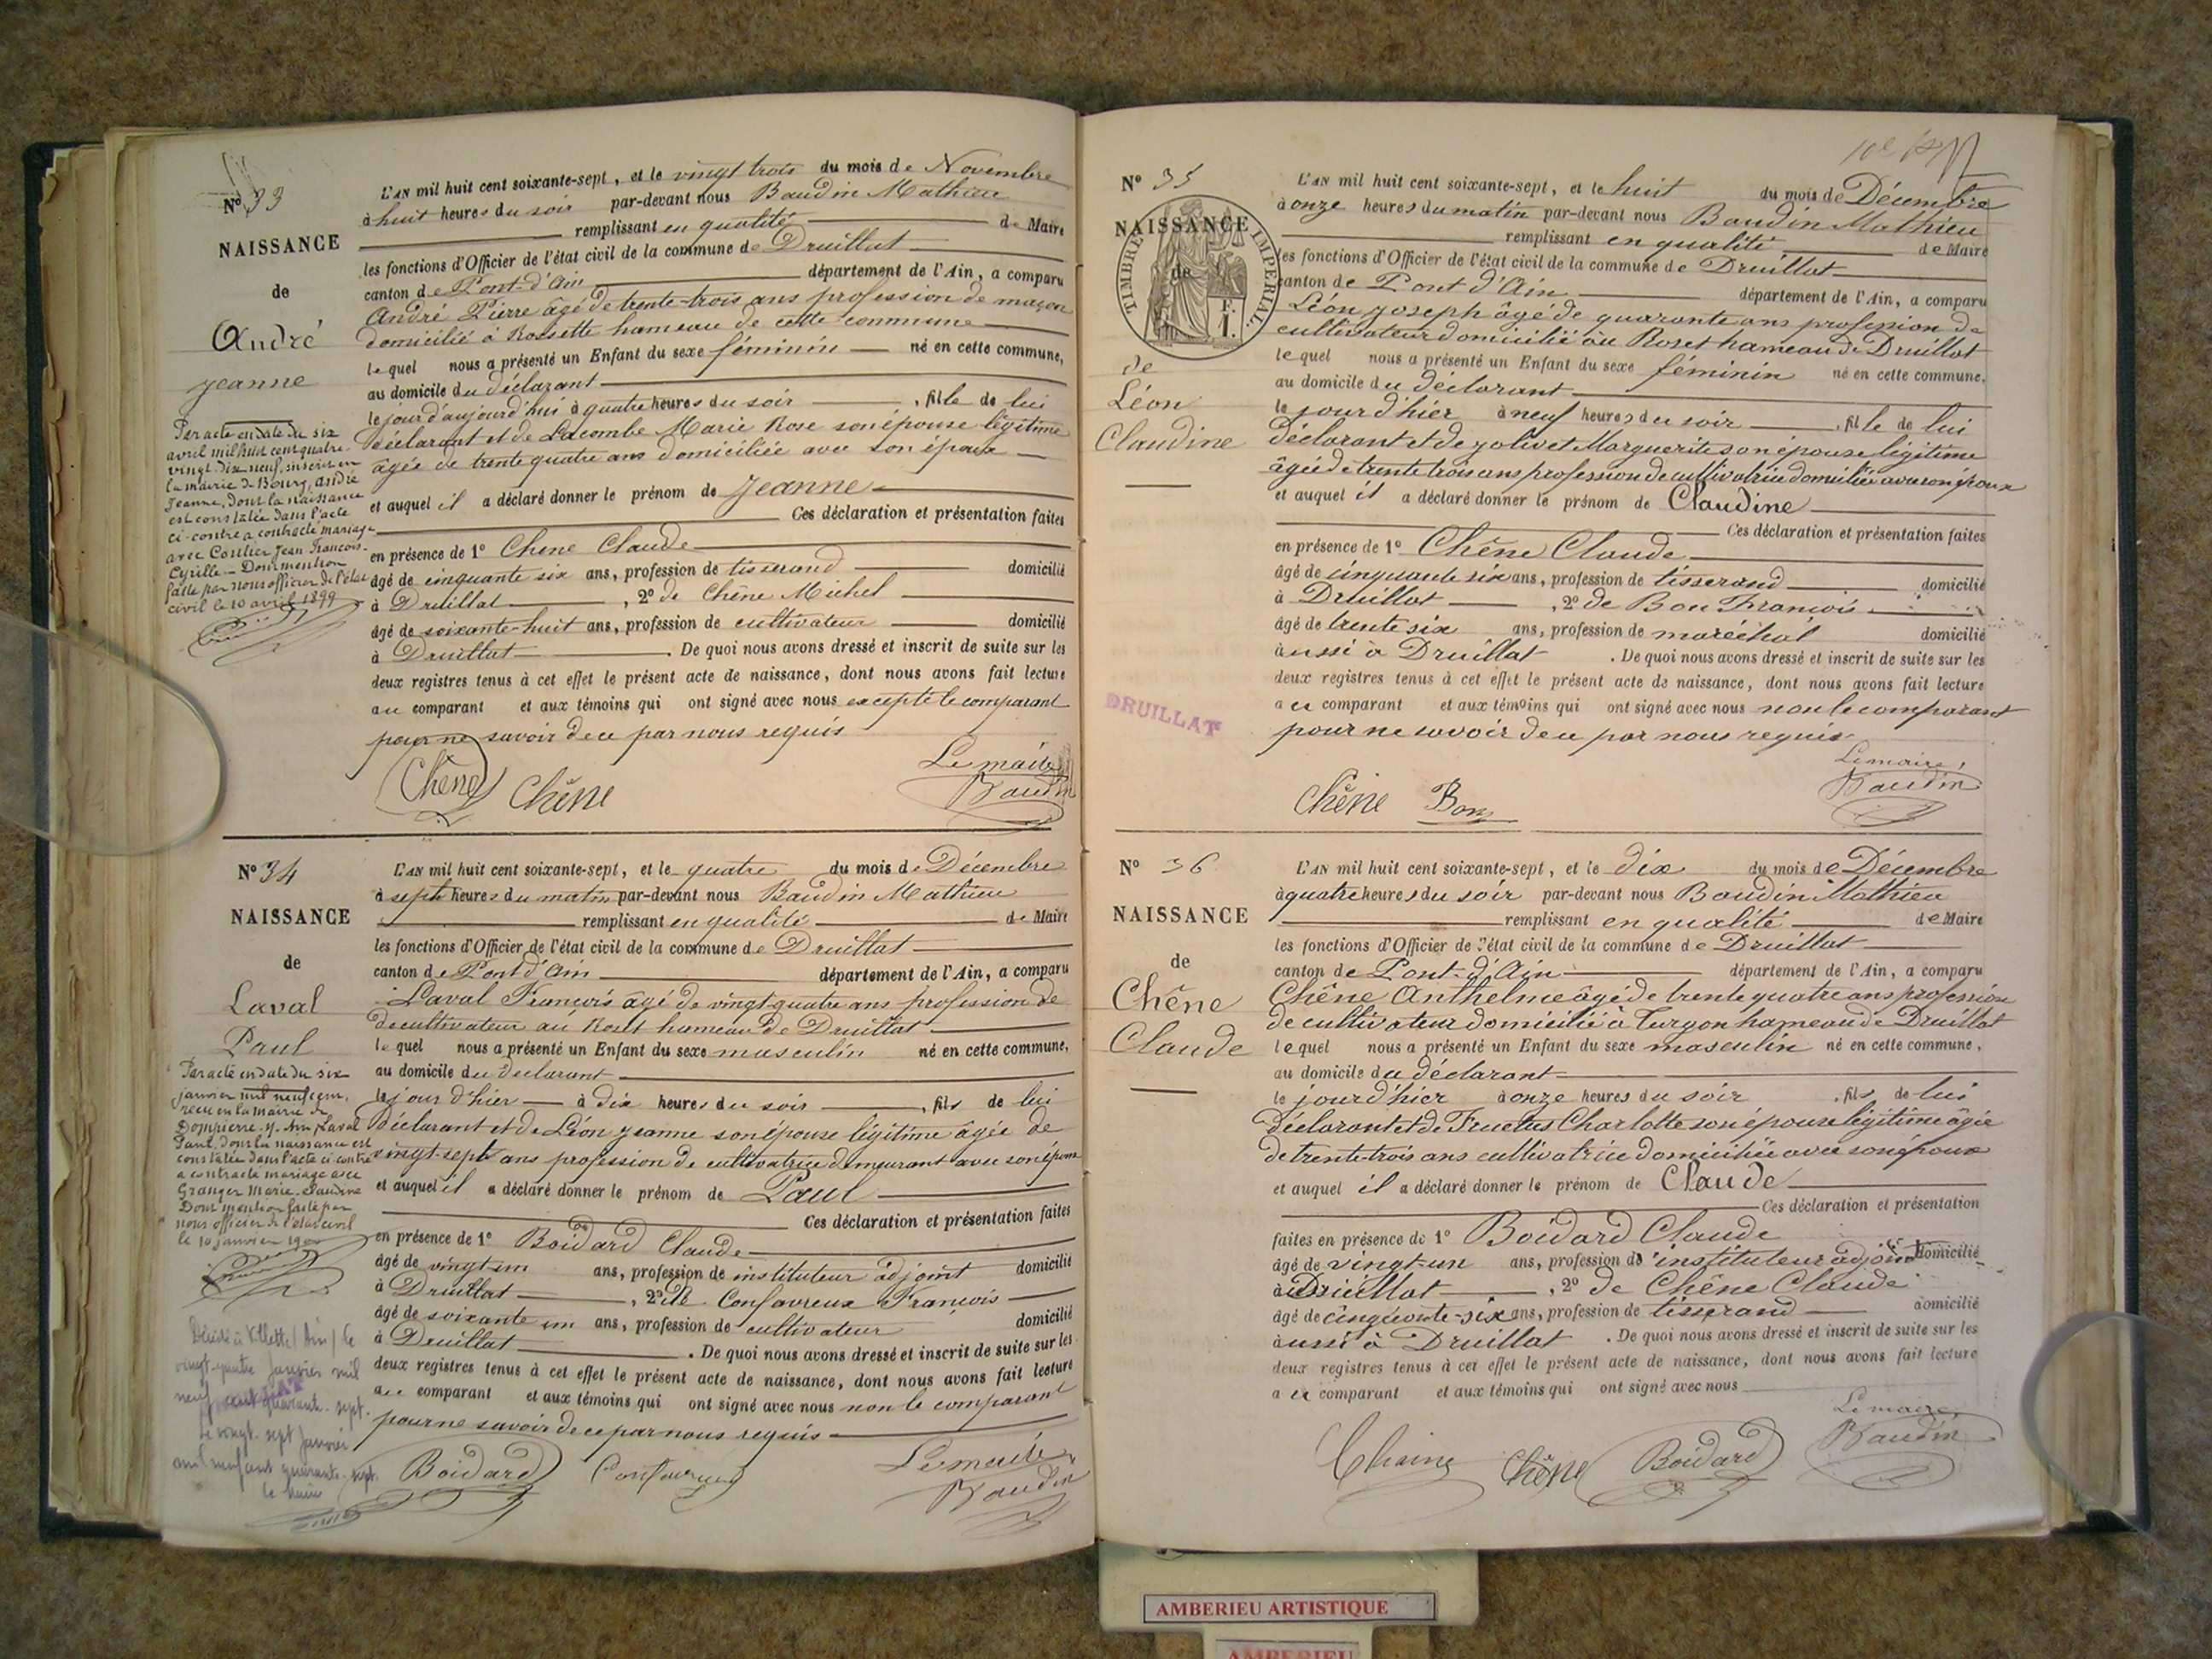 Nº 33
NAISSANCE
de
André
Jeanne
Par acte en date du six
avril mil huit cent quatre-
vingt-dix-neuf, inscrit en
la mairie de Bourg, André
Jeanne, dont la naissance
est constatée dans l'acte
ci-contre a contracté mariage
avec Coulier Jean François-
Cyrille - Dont mention
faite par nous officier de l'état
civil le 10 avril 1899
L'AN mil huit cent soixante-sept, et le vingt trois du mois de Novembre
à huit heures du soir par-devant nous Baudin Mathieu
remplissant en qualité de Maire
les fonctions d'Officier de l'état civil de la commune de Druillat
canton de Pont-d'Ain département de l'Ain, a comparu
André Pierre âgé de trente-trois ans profession de maçon
domicilié à Rossette hameau de cette commune
lequel nous a présenté un Enfant du sexe féminin né en cette commune,
au domicile du déclarant
le jour d'aujourd'hui à quatre heures du soir , fille de lui
déclarant et de Lacombe Marie Rose son épouse légitime
âgée de trente quatre ans domiciliée avec son époux
et auquel il a déclaré donner le prénom de Jeanne
Ces déclaration et présentation faites
en présence de 1º Chêne Claude
âgé de cinquante six ans, profession de tisserand domicilié
à Druillat , 2º de Chêne Michel
âgé de soixante-huit ans, profession de cultivateur domicilié
à Druillat . De quoi nous avons dressé et inscrit de suite sur les
deux registres tenus à cet effet le présent acte de naissance, dont nous avons fait lecture
au comparant et aux témoins qui ont signé avec nous excepté le comparant
pour ne savoir de ce par nous requis
Le maire
Chêne Chêne Baudin
Nº 34
NAISSANCE
de
Laval
Paul
Par acte en date du six
janvier mil neuf cent,
reçu en la mairie de
Dompierre-s-Ain Laval
Paul, dont la naissance est
constatée dans l'acte ci-contre
a contracté mariage avec
Granger Marie-Claudine
Dont mention faite par
nous officier de l'état civil
le 10 janvier 1900
Décédé à Villette (Ain) le
vingt-quatre janvier mil
neuf cent quarante-sept.
Le vingt-sept janvier
mil neuf cent quarante-sept.
le maire
L'AN mil huit cent soixante-sept, et le quatre du mois de Décembre
à sept heures du matin par-devant nous Baudin Mathieu
remplissant en qualité de Maire
les fonctions d'Officier de l'état civil de la commune de Druillat
canton de Pont d'Ain département de l'Ain, a comparu
Laval François âgé de vingt-quatre ans profession de
de cultivateur au Roset hameau de Druillat
lequel nous a présenté un Enfant du sexe masculin né en cette commune,
au domicile du déclarant
le jour d'hier à dix heures du soir , fils de lui
déclarant et de Léon Jeanne son épouse légitime âgée de
vingt-sept ans profession de cultivatrice demeurant avec son époux
et auquel il a déclaré donner le prénom de Paul
Ces déclaration et présentation faites
en présence de 1º Boidard Claude
âgé de vingt-un ans, profession de instituteur adjoint domicilié
à Druillat , 2º de Confavreux François
âgé de soixante un ans, profession de cultivateur domicilié
à Druillat . De quoi nous avons dressé et inscrit de suite sur les
deux registres tenus à cet effet le présent acte de naissance, dont nous avons fait lecture
au comparant et aux témoins qui ont signé avec nous non le comparant
pour ne savoir de ce par nous requis
Le maire
Boidard Confavreux Baudin
Nº 35
NAISSANCE
TIMBRE IMPERIAL
1 F.
de
Léon
Claudine
DRUILLAT
L'AN mil huit cent soixante-sept, et le huit du mois de Décembre
à onze heures du matin par-devant nous Baudin Mathieu
remplissant en qualité de Maire
les fonctions d'Officier de l'état civil de la commune de Druillat
canton de Pont d'Ain département de l'Ain, a comparu
Léon Joseph âgé de quarante ans profession de
cultivateur domicilié au Roset hameau de Druillat
lequel nous a présenté un Enfant du sexe féminin né en cette commune,
au domicile du déclarant
le jour d'hier à neuf heures du soir , fille de lui
déclarant et de Jolivet Marguerite son épouse légitime
âgée de trente trois ans profession de cultivatrice domiciliée avec son époux
et auquel il a déclaré donner le prénom de Claudine
Ces déclaration et présentation faites
en présence de 1º Chêne Claude
âgé de cinquante six ans, profession de tisserand domicilié
à Druillat , 2º de Bon François
âgé de trente six ans, profession de maréchal domicilié
aussi à Druillat . De quoi nous avons dressé et inscrit de suite sur les
deux registres tenus à cet effet le présent acte de naissance, dont nous avons fait lecture
au comparant et aux témoins qui ont signé avec nous non le comparant
pour ne savoir de ce par nous requis
Le maire,
Chêne Bon Baudin
Nº 36
NAISSANCE
de
Chêne
Claude
L'AN mil huit cent soixante-sept, et le dix du mois de Décembre
à quatre heures du soir par-devant nous Baudin Mathieu
remplissant en qualité de Maire
les fonctions d'Officier de l'état civil de la commune de Druillat
canton de Pont-d'Ain département de l'Ain, a comparu
Chêne Anthelme âgé de trente quatre ans profession
de cultivateur domicilié à Turgon hameau de Druillat
lequel nous a présenté un Enfant du sexe masculin né en cette commune,
au domicile du déclarant
le jour d'hier à onze heures du soir , fils de lui
déclarant et de Fructus Charlotte son épouse légitime âgée
de trente-trois ans cultivatrice domiciliée avec son époux
et auquel il a déclaré donner le prénom de Claude
Ces déclaration et présentation
faites en présence de 1º Boidard Claude
âgé de vingt-un ans, profession de instituteur adjoint domicilié
à Druillat , 2º de Chêne Claude
âgé de cinquante-six ans, profession de tisserand domicilié
aussi à Druillat . De quoi nous avons dressé et inscrit de suite sur les
deux registres tenus à cet effet le présent acte de naissance, dont nous avons fait lecture
au comparant et aux témoins qui ont signé avec nous
Le maire
Chaine Chêne Boidard Baudin
AMBERIEU ARTISTIQUE
AMBERIEU